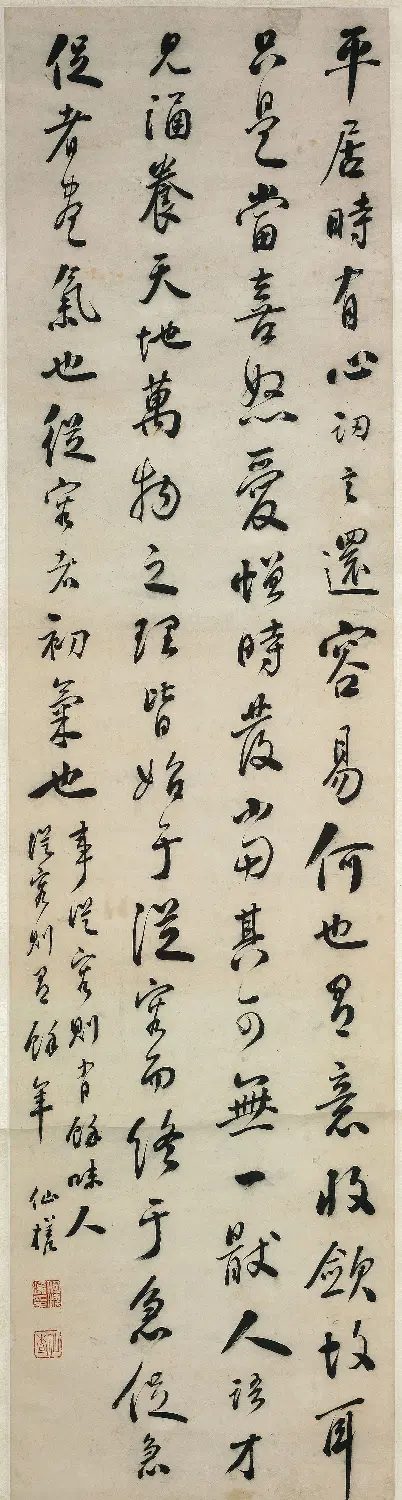 平居時有心訒言還容易何也有意收斂故耳
只是當喜怒愛憎時發當其可無一猒人語才
見涵養天地萬物之理皆始于從容而終于急促急
促者盡氣也從容者初氣也
事從容則有餘味人
從容則有餘年 仙槎